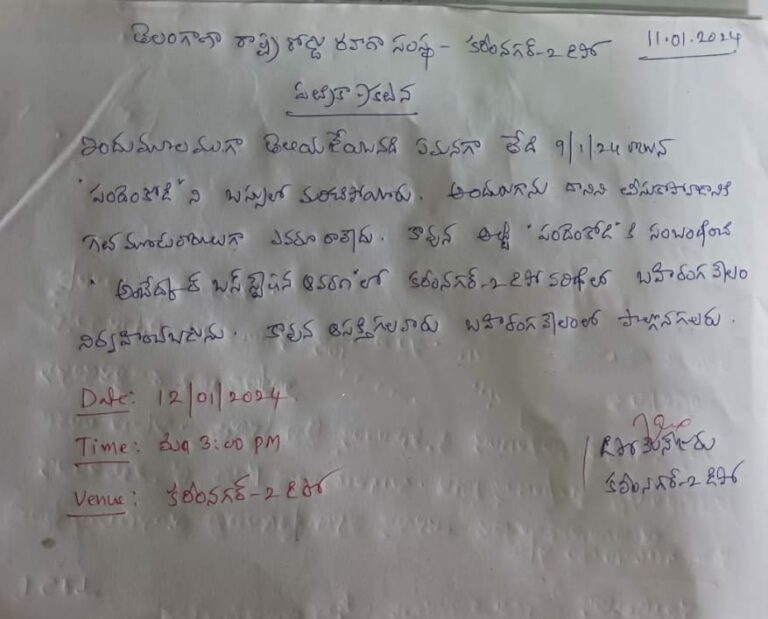 తెలంగాణా రాష్ట్ర రోడ్డు రవాణా సంస్థ - కరీంనగర్-2 డిపో 11.01.2024
పత్రికా ప్రకటన
ఇందుమూలముగా తెలియజేయునది ఏమనగా తేది 9/1/24 రోజున
"పందెంకోడి" ని బస్సులో మరచిపోయారు. అందులగాను దానిని తీసుకోపోవడానికి
గత మూడురోజులుగా ఎవరూ రాలేదు. కావున అట్టి "పందెంకోడి" కి సంబంధించి
అంబేద్కర్ బస్ స్టేషన్ ఆవరణలో కరీంనగర్-2 డిపో పరిధిలో బహిరంగ వేలం
నిర్వహించబడును. కావున ఆసక్తిగలవారు బహిరంగ వేలంలో పాల్గొనగలరు.
Date: 12/01/2024
Time: మ॥ 3:00 PM
Venue: కరీంనగర్-2 డిపో
డిపో మేనేజరు
కరీంనగర్-2 డిపో